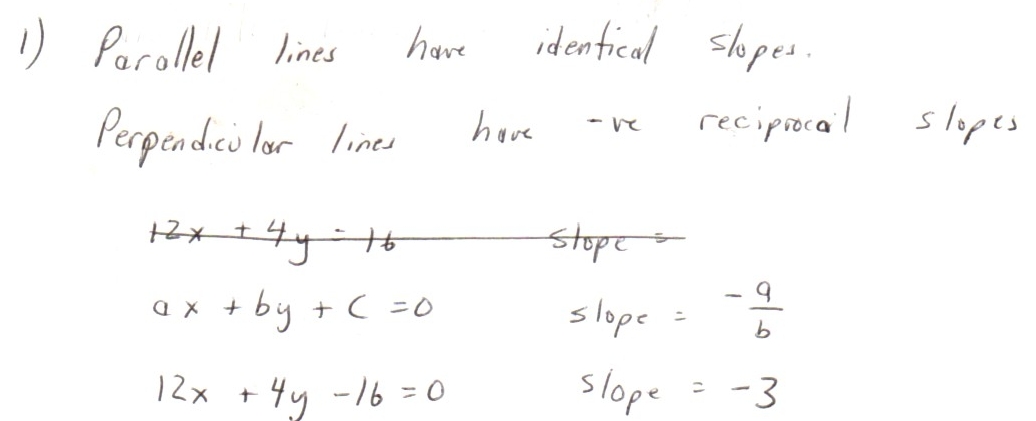 1) Parallel lines have identical slopes.
Perpendicular lines have -ve reciprocal slopes
12x + 4y = 16 slope =
ax + by + C = 0 slope = -a/b
12x + 4y - 16 = 0 slope = -3